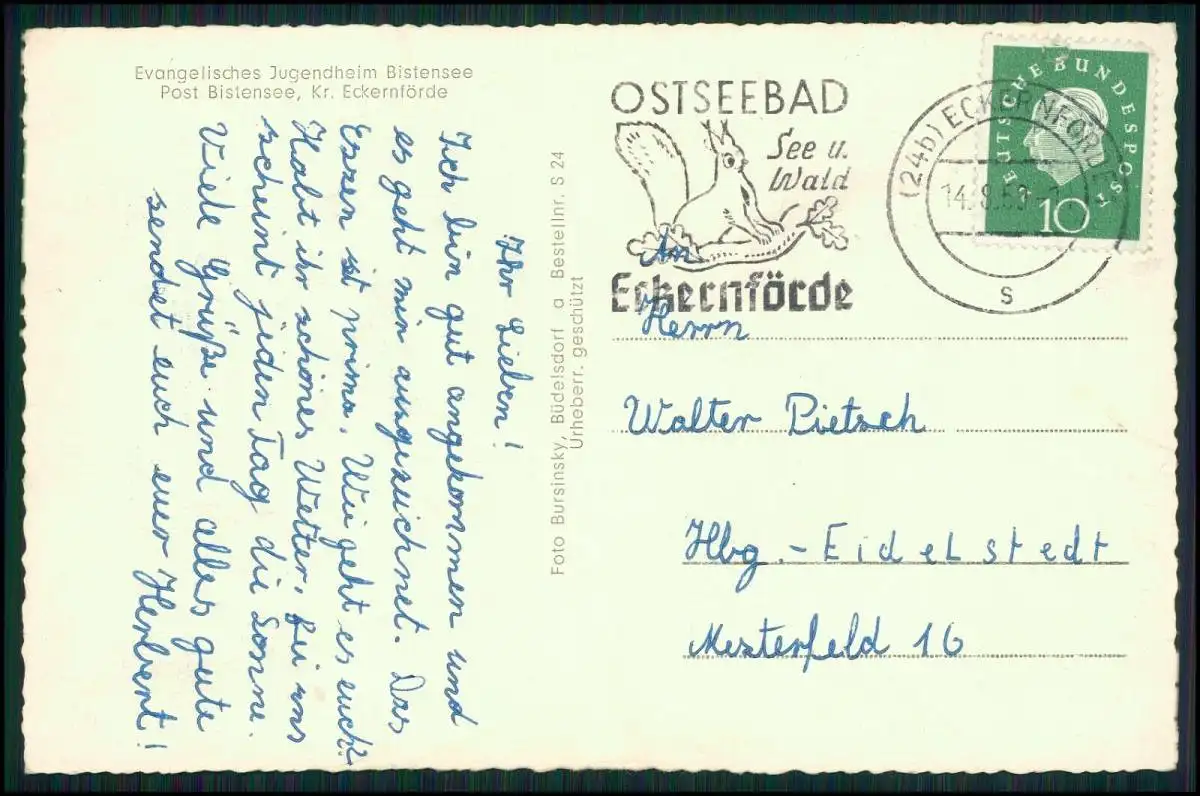 Evangelisches Jugendheim Bistensee
Post Bistensee, Kr. Eckernförde
Ihr Lieben!
Ich bin gut angekommen und
es geht mir ausgezeichnet. Das
Essen ist prima. Wie geht es euch?
Habt ihr schönes Wetter. Bei uns
scheint jeden Tag die Sonne.
Viele Grüße und alles gute
sendet euch euer Herbert!
Foto Bursinsky, Büdelsdorf a Bestellnr. S 24
Urheberr. geschützt
OSTSEEBAD
See u.
Wald
Eckernförde
(24b) ECKERNFÖRDE
14.8.59
s
DEUTSCHE BUNDESPOST
10
An
Herrn
Walter Pietsch
Hbg.-Eidelstedt
Mesterfeld 16